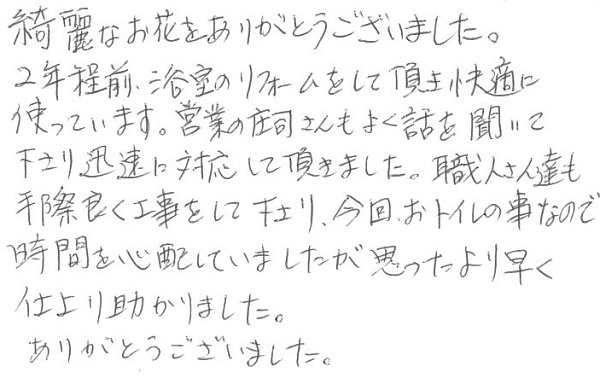 綺麗なお花をありがとうございました。
2年程前、浴室のリフォームをして頂き快適に
使っています。営業の庄司さんもよく話を聞いて
下さり迅速に対応して頂きました。職人さん達も
手際良く工事をして下さり、今回、おトイレの事なので
時間を心配していましたが思ったより早く
仕上り助かりました。
ありがとうございました。